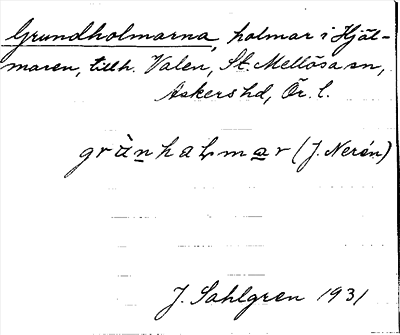 Grundholmarna, holmar i Hjäl-
maren, till h. Valen, St. Mellösa sn,
Askers hd, Ör. l.
grànhaLmar (J. Nerén)
J. Sahlgren 1931